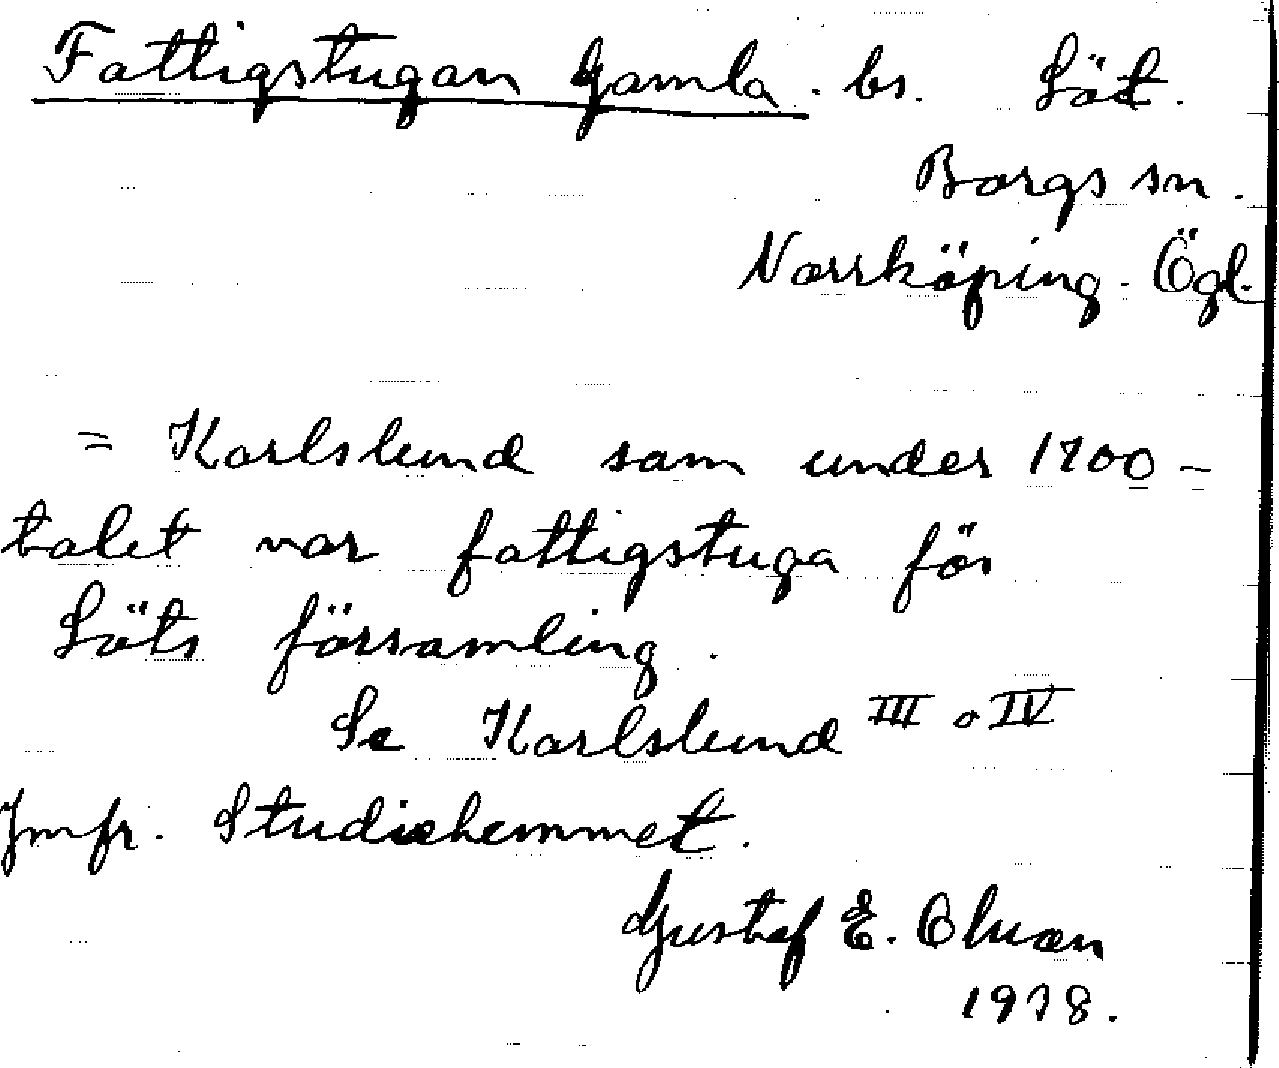 Fattigstugan Gamla. bs. Löt.
Borgs sn.
Norrköping. Ögl.
= Karlslund som under
talet var fattigstuga för
Löts församling.
Se Karlslund III o IV
Jmfr. Studiehemmet.
Gustaf E. Olsson
1978.